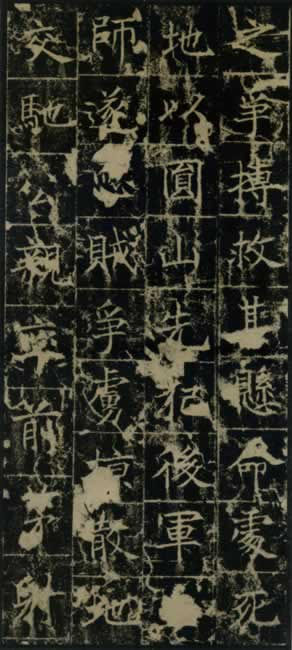 之爭搏救其懸命處死
地以圓山先犯後軍
師遂賊爭虜掠散地
交馳公親率前矛射